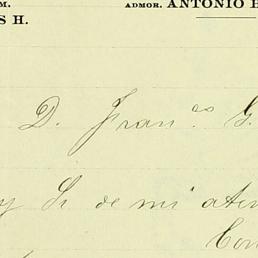 M.
ADMOR. ANTONIO E
S H.
D. Fran.co G.
y Sr de mi aten
Con